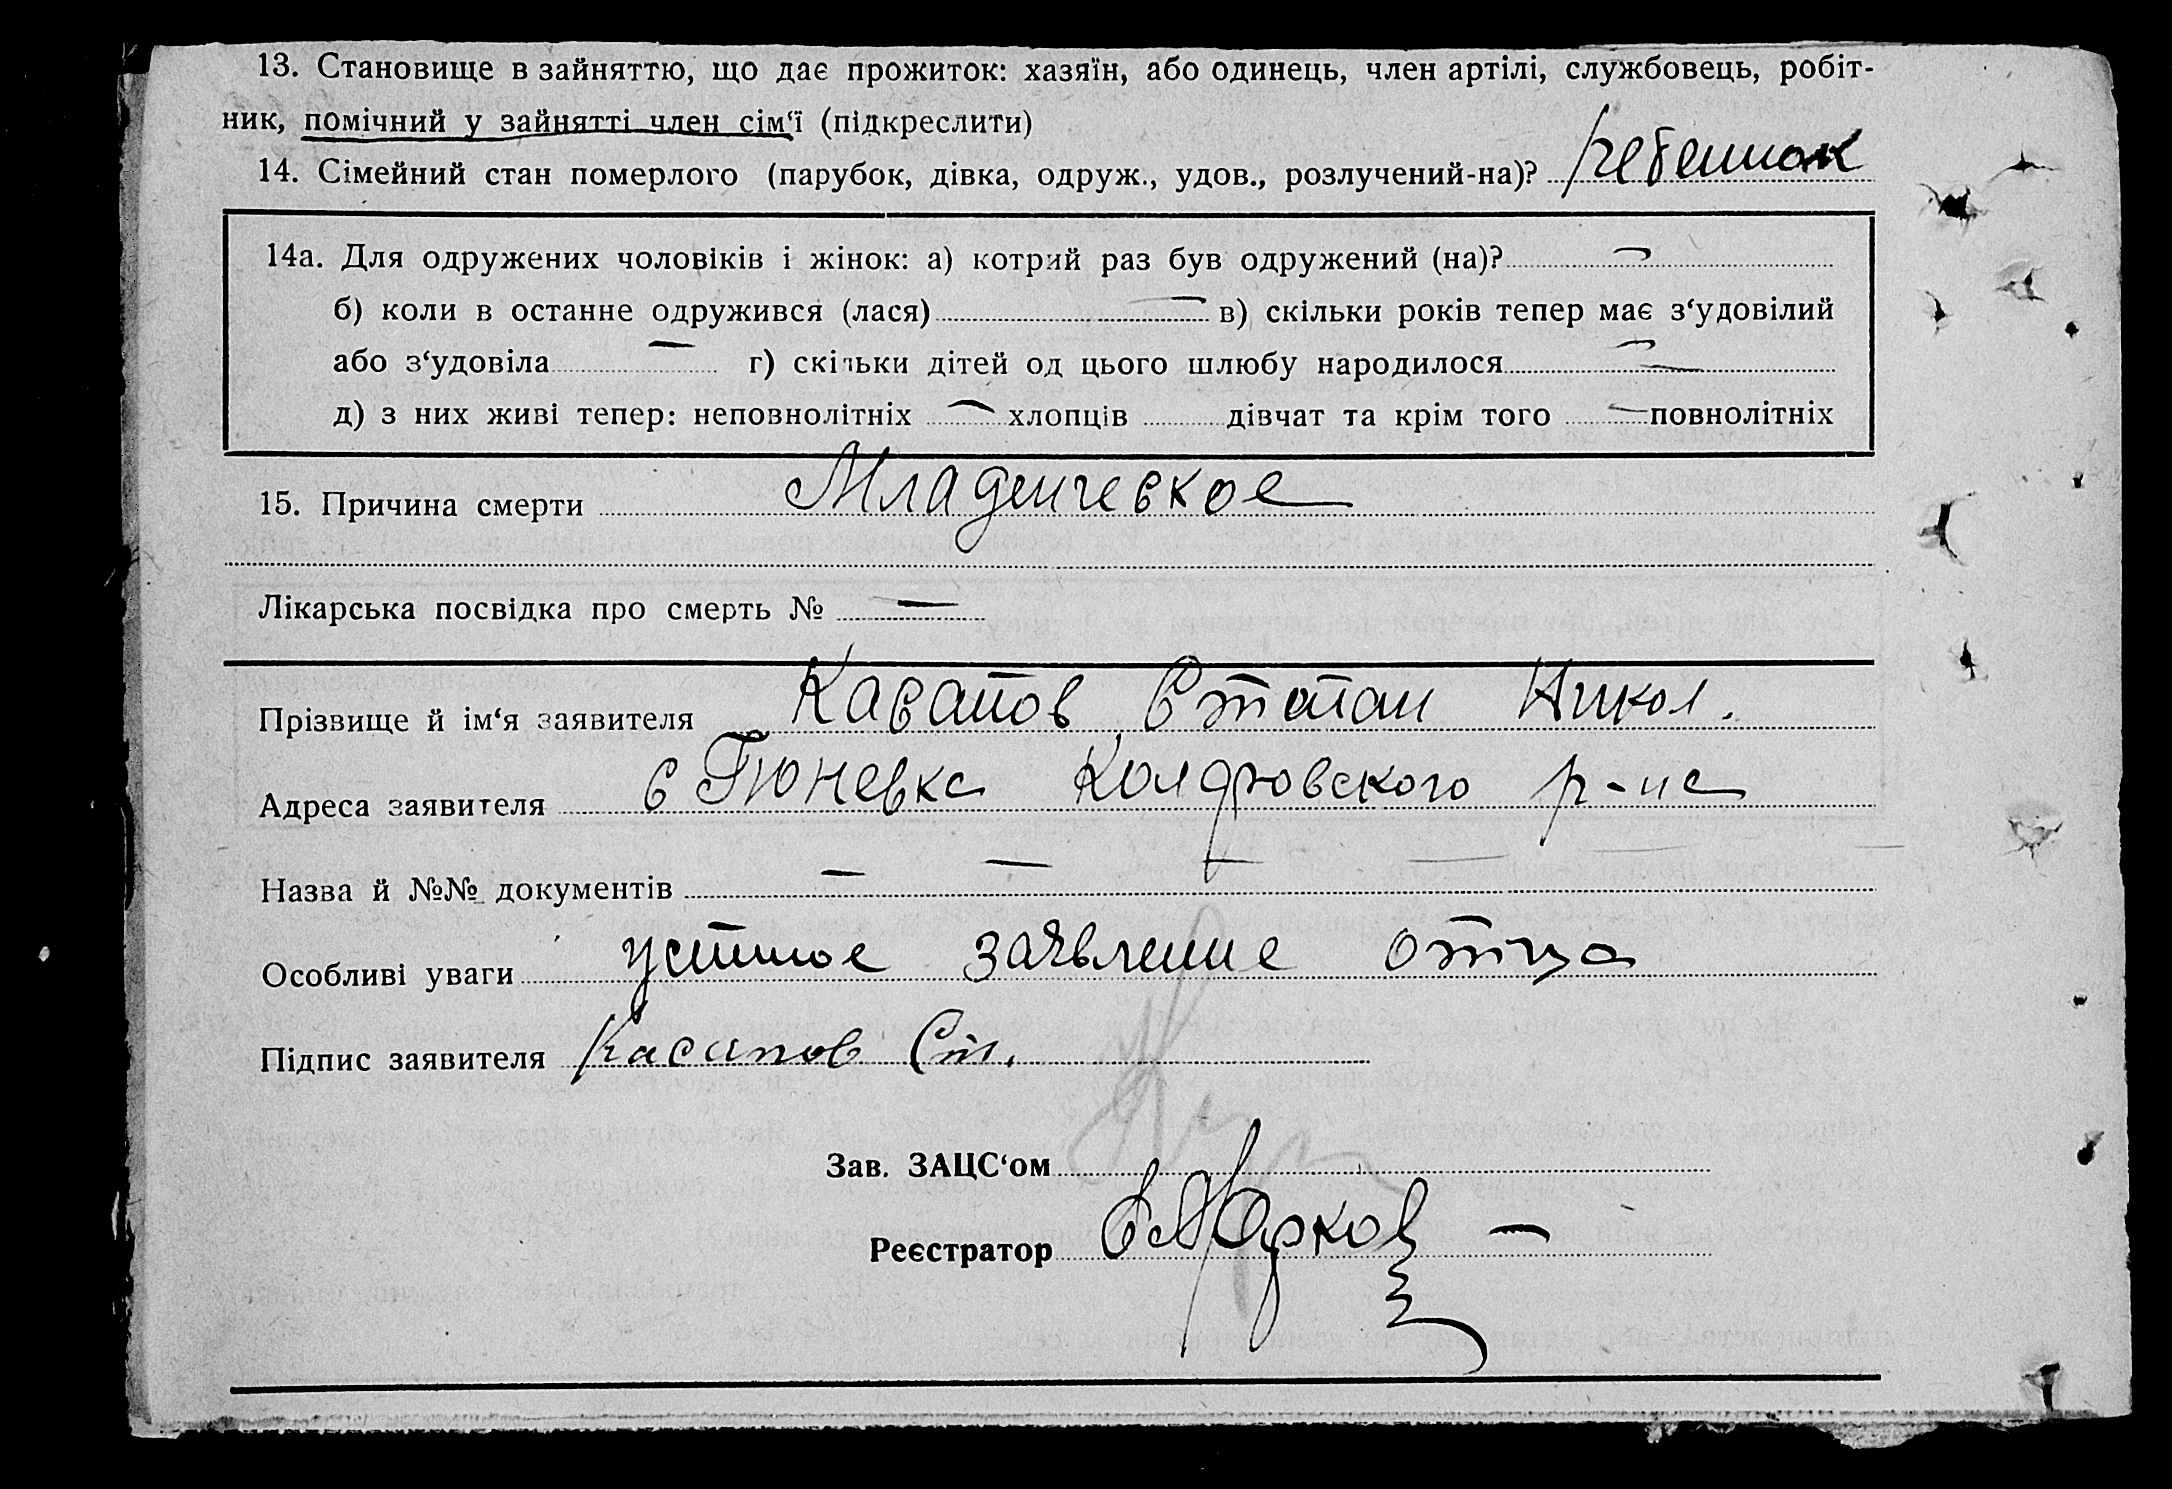 13. Становище в зайняттю, що дає прожиток: хазяїн, або одинець, член артілі, службовець, робіт-
ник, помічний у зайнятті член сім‘ї (підкреслити)
14. Сімейний стан померлого (парубок, дівка, одруж., удов., розлучений-на)? ребенок
14а. Для одружених чоловіків і жінок: а) котрий раз був одружений (на)? —
б) коли в останне одружився (лася) — в) скільки років тепер має з‘удовілий
або з‘удовіла — г) скільки дітей од цього шлюбу народилося —
д) з них живі тепер: неповнолітніх — хлопців дівчат та крім того — повнолітніх
15. Причина смерти Младенческое
Лікарська посвідка про смерть № —
Прізвище й ім‘я заявителя Касапов Степан Никол.
Адреса заявителя с Гюневка Коларовского р-на
Назва й №№ документів — — —
Особливі уваги устное заявление отца
Підпис заявителя Касапов Ст.
Зав. ЗАЦС‘ом
Реєстратор